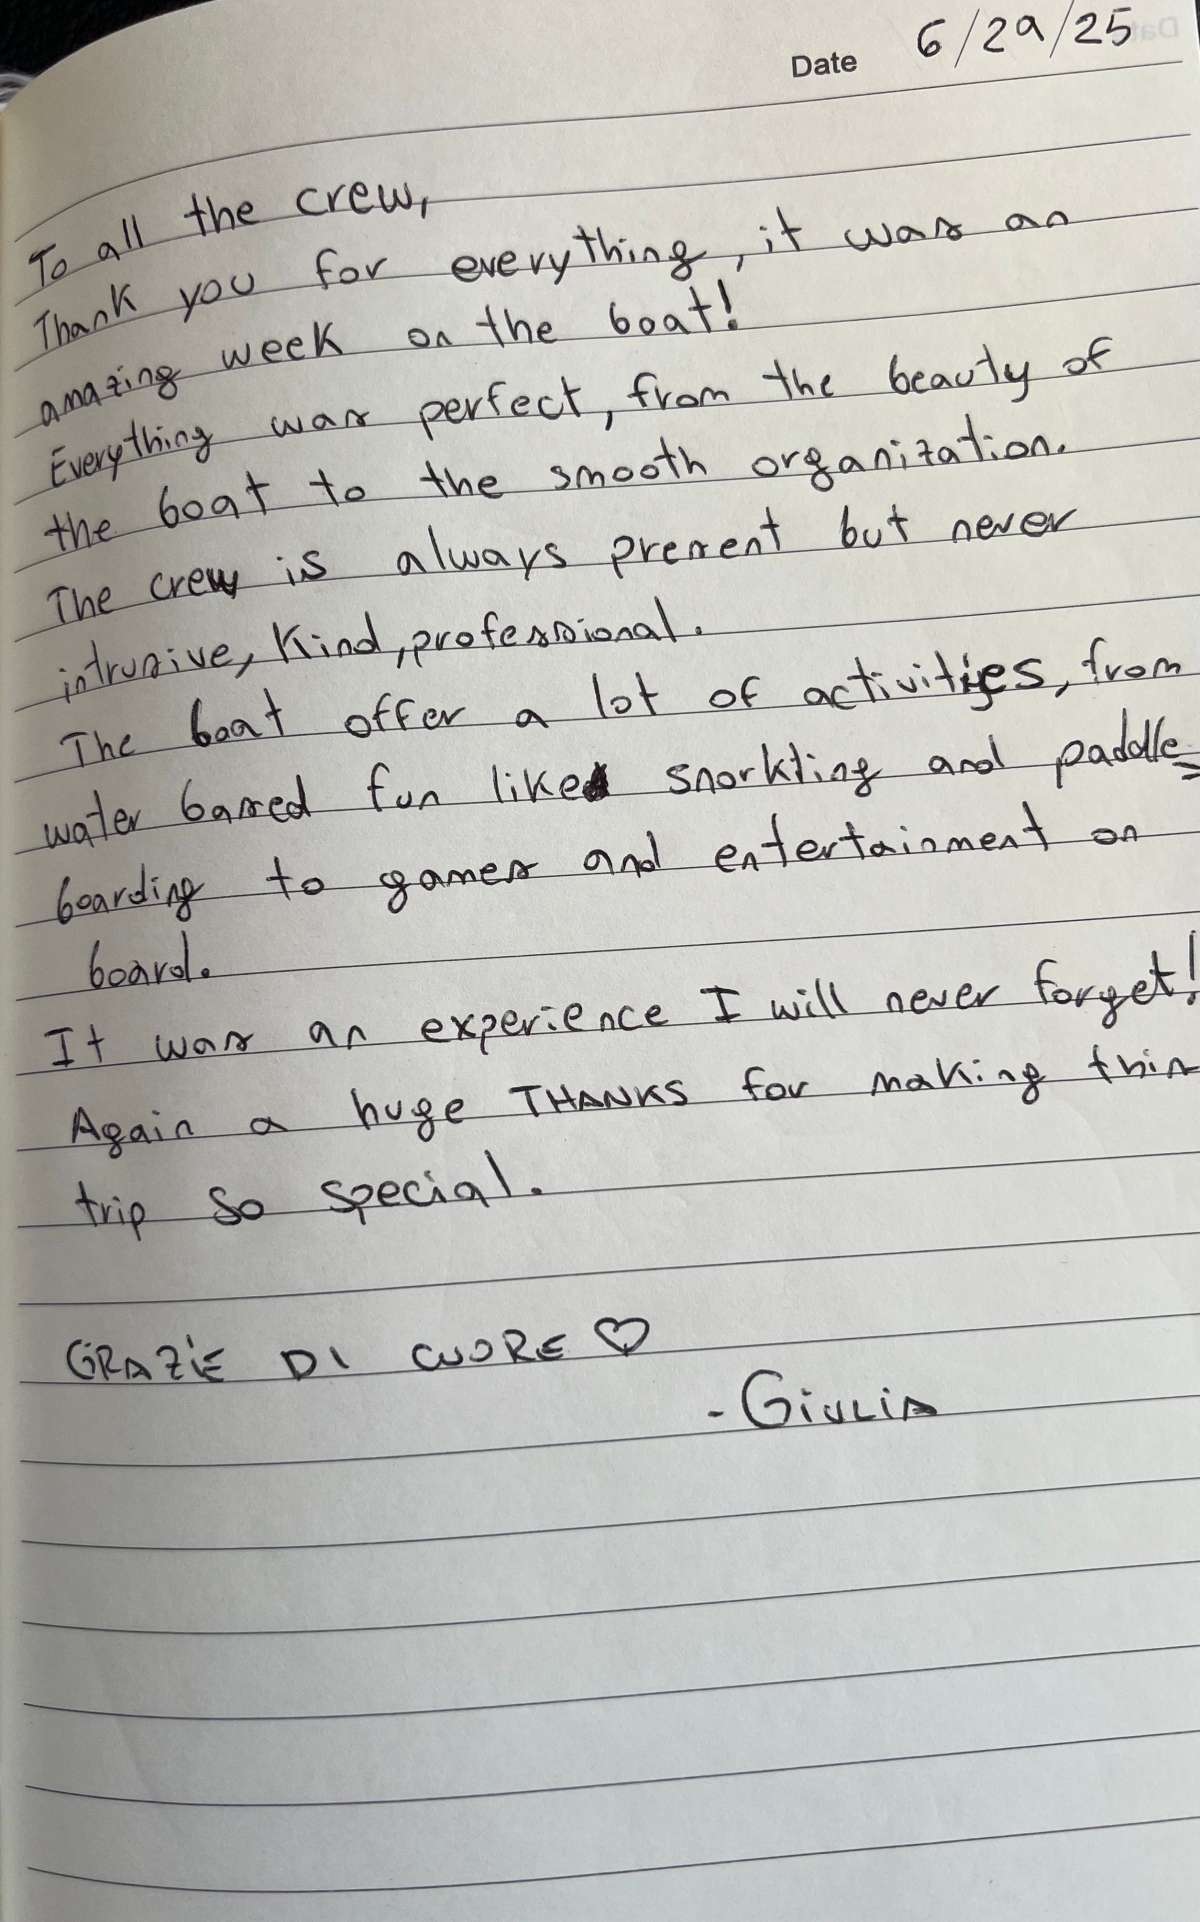 Date 6/29/25
To all the crew,
Thank you for everything, it was an
amazing week on the boat!
Everything was perfect, from the beauty of
the boat to the smooth organization.
The crew is always present but never
intrusive, kind, professional.
The boat offer a lot of activities, from
water based fun like snorkling and paddle=
boarding to games and entertainment on
board.
It was an experience I will never forget!
Again a huge THANKS for making this
trip so special.
GRAZIE DI CUORE ♡
- GIULIA